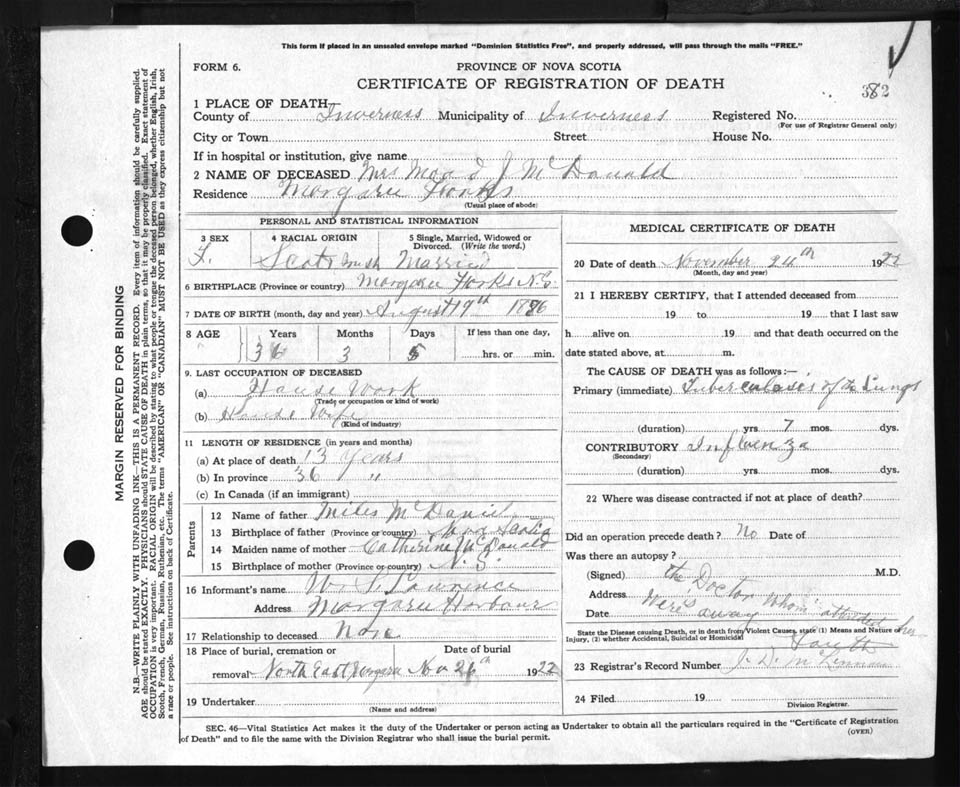 This form if placed in an unsealed envelope marked "Dominion Statistics Free", and properly addressed, will pass through the mails "FREE."
FORM 6.
PROVINCE OF NOVA SCOTIA
CERTIFICATE OF REGISTRATION OF DEATH
382
1 PLACE OF DEATH—
County of Inverness Municipality of Inverness Registered No.
(For use of Registrar General only)
City or Town Street House No.
If in hospital or institution, give name
2 NAME OF DECEASED Mrs J McDonald
Residence Margaree Forks
(Usual place of abode)
PERSONAL AND STATISTICAL INFORMATION
3 SEX
F.
4 RACIAL ORIGIN
Scotch
5 Single, Married, Widowed or Divorced. (Write the word.)
Married
6 BIRTHPLACE (Province or country) Margaree Forks N.S.
7 DATE OF BIRTH (month, day and year) August 19th 1886
8 AGE
Years Months Days If less than one day,
36 3 5 hrs. or min.
9. LAST OCCUPATION OF DECEASED
(a) House Work
(Trade or occupation or kind of work)
(b) House Wife
(Kind of industry)
11 LENGTH OF RESIDENCE (in years and months)
(a) At place of death 13 Years
(b) In province 36 "
(c) In Canada (if an immigrant)
Parents
12 Name of father Miles McDaniel
13 Birthplace of father (Province or country) Nova Scotia
14 Maiden name of mother Catherine McDonald
15 Birthplace of mother (Province or country) N.S.
16 Informant's name W. Lawrence
Address Margaree Harbour
17 Relationship to deceased None
18 Place of burial, cremation or removal Date of burial
North East Margaree Nov 26th 1922
19 Undertaker
(Name and address)
MEDICAL CERTIFICATE OF DEATH
20 Date of death November 24th 1922
(Month, day and year)
21 I HEREBY CERTIFY, that I attended deceased from
19 to 19 that I last saw
h alive on 19 and that death occurred on the
date stated above, at m.
The CAUSE OF DEATH was as follows:—
Primary (immediate) Tuberculosis of the Lungs
(duration) yrs 7 mos. dys.
CONTRIBUTORY Influenza
(Secondary)
(duration) yrs. mos. dys.
22 Where was disease contracted if not at place of death?
Did an operation precede death? No Date of
Was there an autopsy?
(Signed) the Doctor M.D.
Address Whom attended her
Date Were away
State the Disease causing Death, or in death from Violent Causes, state (1) Means and Nature of Injury, (2) whether Accidental, Suicidal or Homicidal
23 Registrar's Record Number J. D. McLennan
24 Filed 19
Division Registrar.
SEC. 46—Vital Statistics Act makes it the duty of the Undertaker or person acting as Undertaker to obtain all the particulars required in the "Certificate of Registration
of Death" and to file the same with the Division Registrar who shall issue the burial permit.
(OVER)
MARGIN RESERVED FOR BINDING
N.B.—WRITE PLAINLY WITH UNFADING INK—THIS IS A PERMANENT RECORD. Every item of information should be carefully supplied.
AGE should be stated EXACTLY. PHYSICIANS should STATE CAUSE OF DEATH in plain terms, so that it may be properly classified. Exact statement of
OCCUPATION is very important. RACIAL ORIGIN will be described by stating to what people or tongue the deceased person belonged, whether English, Irish,
Scotch, French, German, Russian, Ruthenian, etc. The terms "AMERICAN" OR "CANADIAN" MUST NOT BE USED as they express citizenship but not
a race or people. See instructions on back of Certificate.